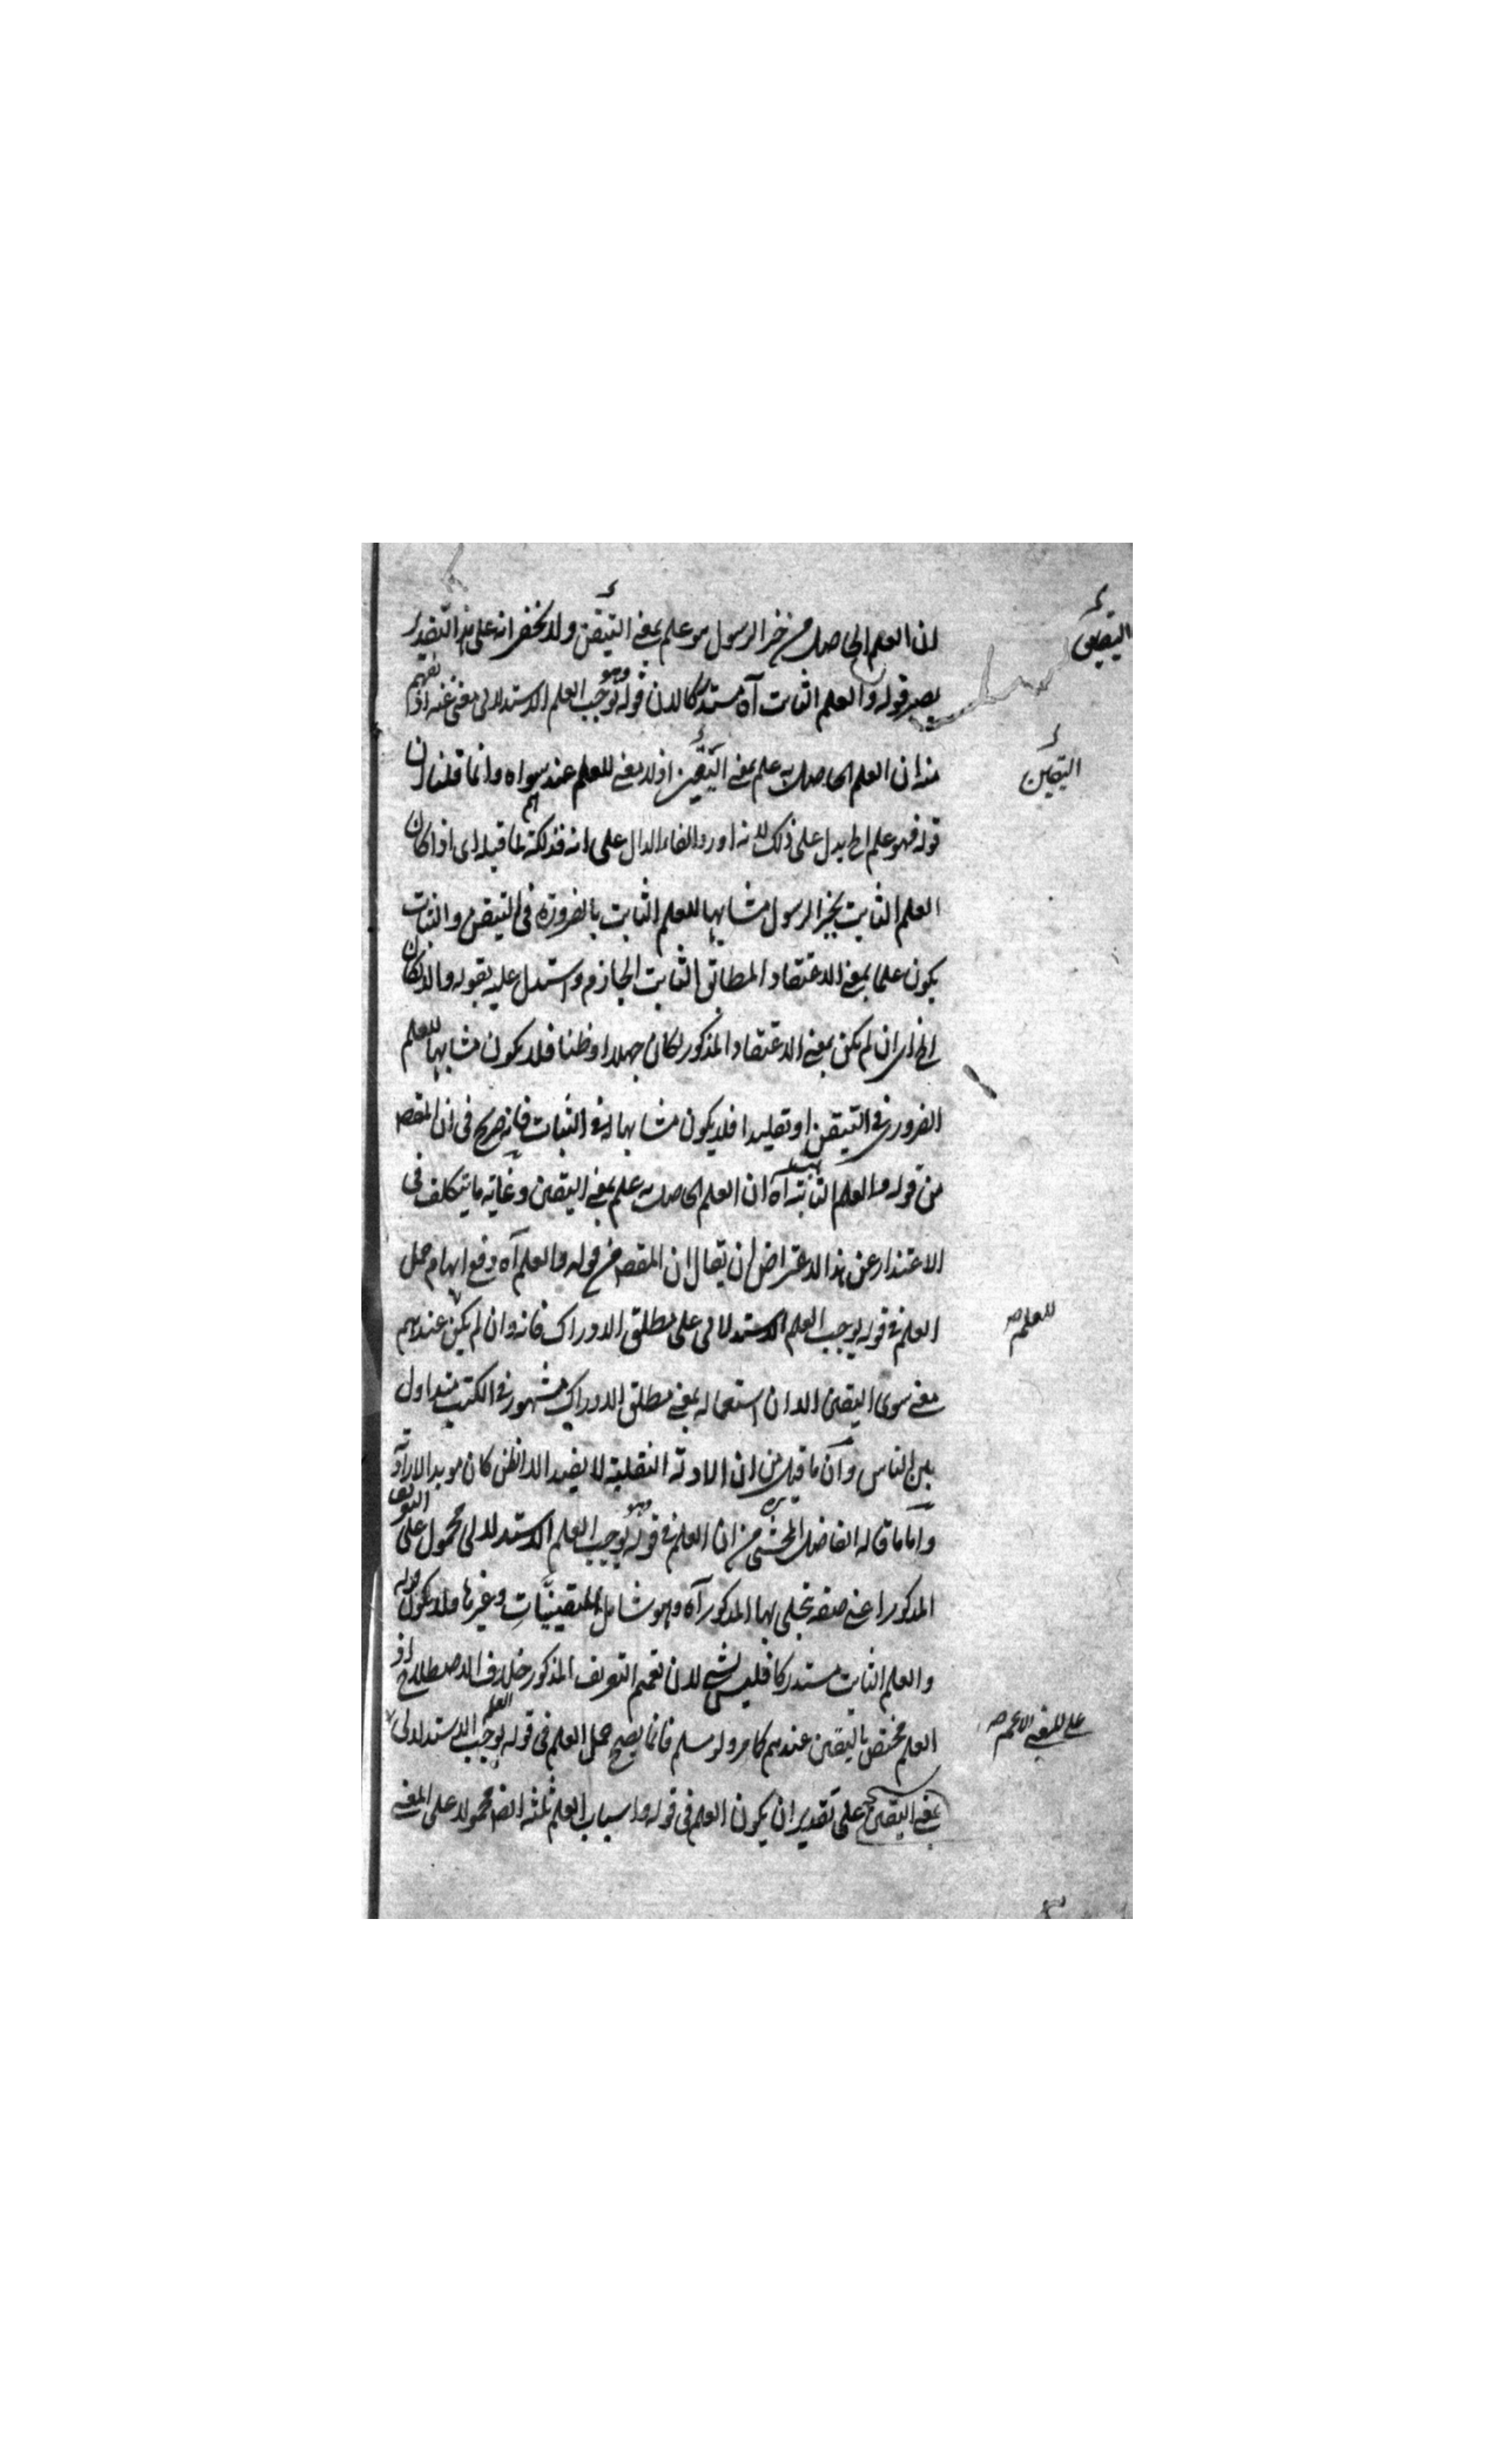 ان العلم الحاصل من خبر الرسول هو علم بمعنى التيقن ولا يخفى انه على هذا التقدير
يصير قوله والعلم الثابت آه مستدركا لان قوله وهو يوجب العلم الاستدلالى مغنى عنه اذ يفهم
منه ان العلم الحاصل به علم بمعنى التيقن اذ لا معنى للعلم عندهم سواه وانما قلنا ان
قوله فهو علم الخ يدل على ذلك لانه اورد الفاء الدال على انه فذلكة لما قبله اى اذا كان
العلم الثابت بخبر الرسول مشابها للعلم الثابت بالضرورة فى التيقن والثبات
يكون علما بمعنى الاعتقاد المطابق الثابت الجازم واستدل عليه بقوله والا لكان
الخ اى ان لم يكن بمعنى الاعتقاد المذكور لكان جهلا او ظنا فلا يكون مشابها للعلم
الضرورى فى التيقن او تقليدا فلا يكون مشابها له فى الثبات فانه صريح فى ان المقصد
من قوله والعلم الثابت به آه ان العلم الحاصل به علم بمعنى اليقين وغاية ما يتكلف فى
الاعتذار عن هذا الاعتراض ان يقال ان المقصد من قوله والعلم آه دفع ايهام حمل
العلم فى قوله يوجب العلم الاستدلالى على مطلق الادراك فانه وان لم يكن عندهم
معنى سوى اليقين الا ان استعماله بمعنى مطلق الادراك مشهور فى الكتب متداول
بين الناس وان ما قيل من ان الادلة النقلية لا يفيد الا الظن كان مؤيدا لارادته
واما ما قاله الفاضل المحشى من ان العلم فى قوله وهو يوجب العلم الاستدلالى محمول على التعريف
المذكور اعنى صفة تجلى بها المذكور آه وهو شامل لليقينيات وغيرها فلا يكون قوله
والعلم الثابت مستدركا فليس بشى لان تعميم التعريف المذكور خلاف الاصطلاح اذ
العلم مختص باليقين عندهم كما مر ولو سلم فانما يصح حمل العلم فى قوله يوجب العلم الاستدلالى
بمعنى اليقين على تقدير ان يكون العلم فى قوله واسباب العلم ثلثة ايضا محمولا على المعنى
اليقين
التيقن
للعلم صح
على المعنى الاعم صح